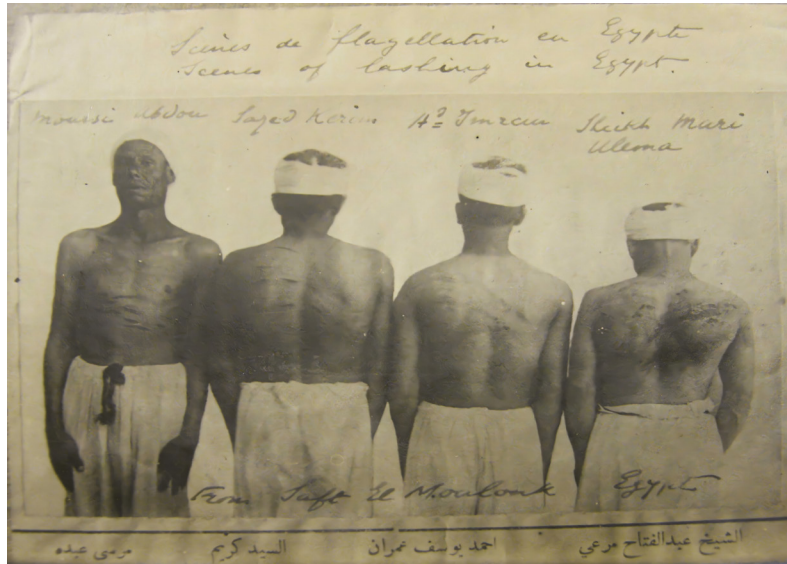 Scènes de flagellation en Egypte
Scenes of lashing in Egypt.
Moussi Abdou Sayed Kerim A? Imran Sheikh Mari
Ulema
From Saft El Moulouk Egypt
مرسى عبده السيد كريم احمد يوسف عمران الشيخ عبدالفتاح مرعي